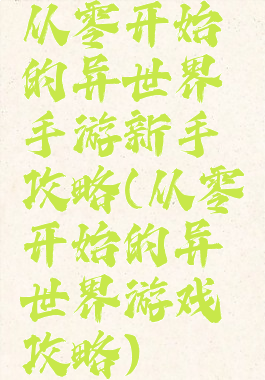 从零开始
的异世界
手游新手
攻略(从零
开始的异
世界游戏
攻略)